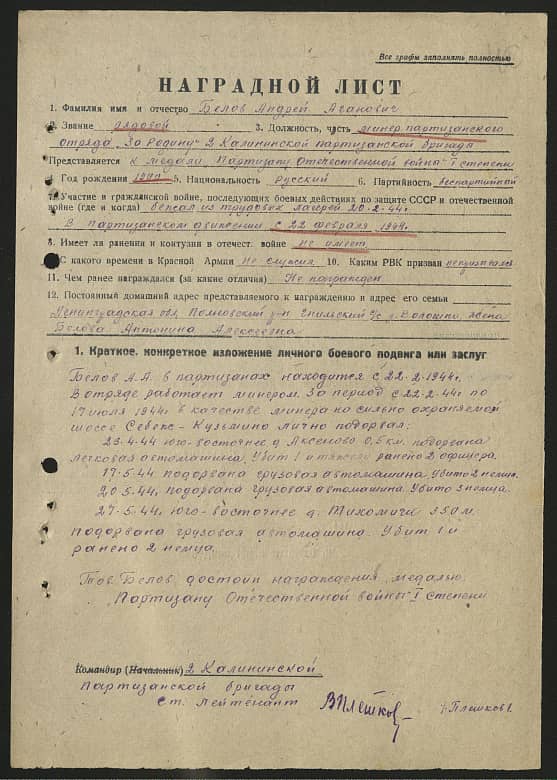 Все графы заполнять полностью
НАГРАДНОЙ ЛИСТ
1. Фамилия имя и отчество Белов Андрей Агапович
2. Звание рядовой 3. Должность, часть минер партизанского
отряда „За Родину" 2 Калининской партизанской бригады
Представляется к медали „Партизану Отечественной войны" I степени
4. Год рождения 5. Национальность русский 6. Партийность беспартийный
7. Участие в гражданской войне, последующих боевых действиях по защите СССР и отечественной
войне (где и когда) бежал из трудовых лагерей 20-2-44г.
В партизанском движении с 22 февраля 1944г.
8. Имеет ли ранения и контузии в отечест. войне не имеет
С какого времени в Красной Армии не служил 10. Каким РВК призван
11. Чем ранее награждался (за какие отличия) Не награжден
12. Постоянный домашний адрес представляемого к награждению и адрес его семьи
Ленинградская обл, р-н с/с д. Волошно, жена
Белова Антонина Алексеевна
1. Краткое, конкретное изложение личного боевого подвига или заслуг
Белов А.А. в партизанах находится с 22-2-1944г.
В отряде работает минером. За период с 22-2-44г по
17 июля 1944г в качестве минера на сильно охраняемой
шоссе Себеж - Кузьмино лично подорвал:
23-4-44г юго-восточнее д Аксеново 0,5 км. подорвана
легковая автомашина, Убит 1 и тяжело ранено 2 офицера.
17-5-44г подорвана грузовая автомашина, Убито 2 немца.
20-5-44г, подорвана грузовая автомашина. Убито 3 немца.
27-5-44г. юго-восточнее д. Тихомичи 350 м.
Подорвана грузовая автомашина. Убит 1 и
ранено 2 немца.
Тов. Белов достоин награждения медалью
„Партизану Отечественной войны" I степени
Командир (Начальник) 2 Калининской
партизанской бригады
ст. Лейтенант ВПлешков /Плешков/.